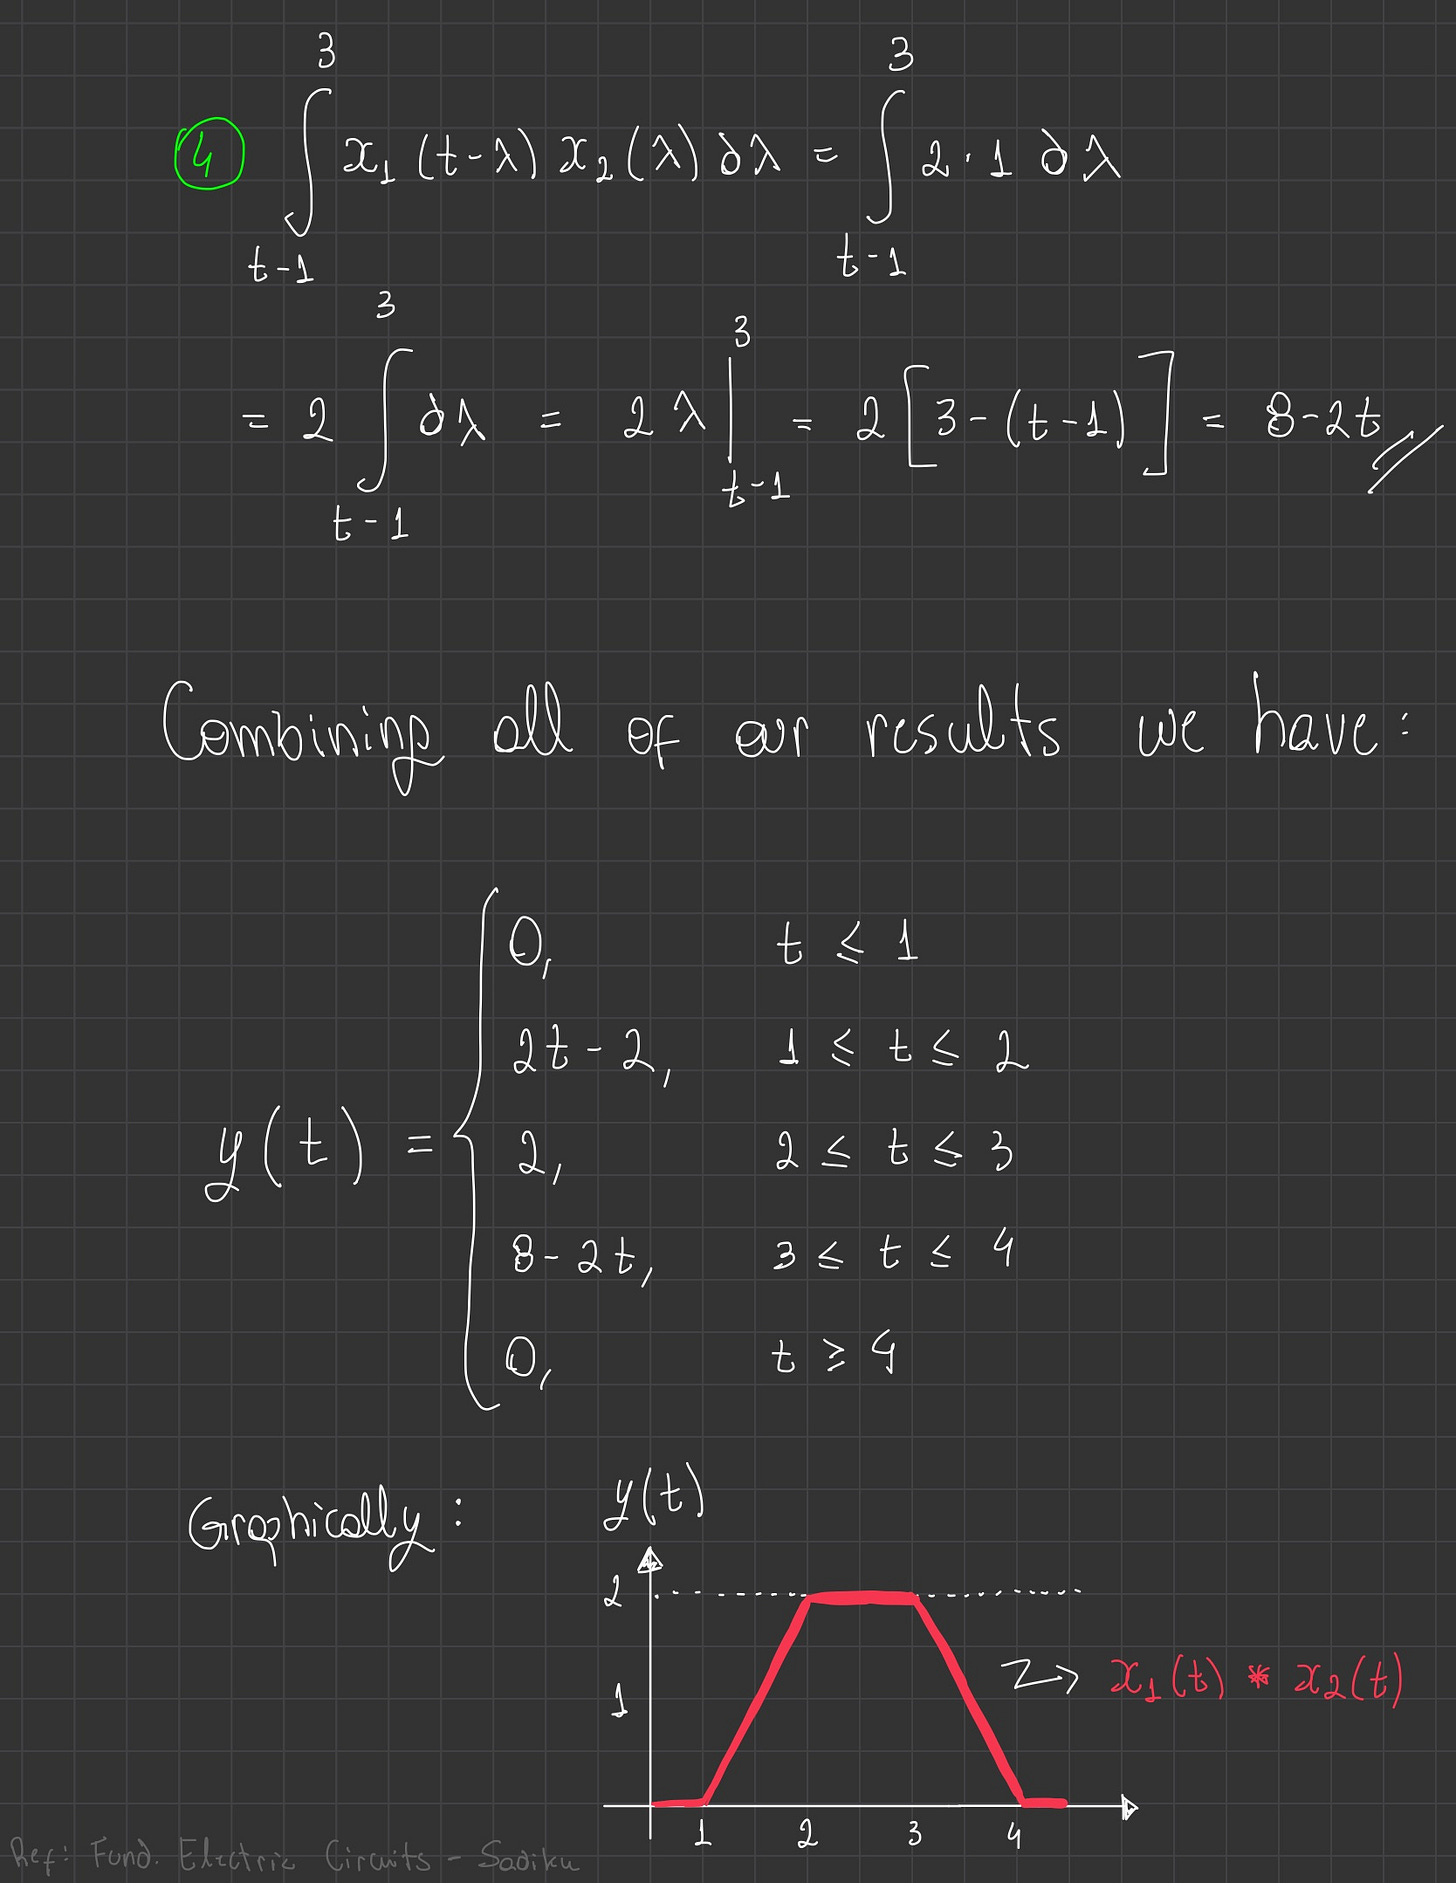 ④ ∫_{t-1}^{3} x₁(t-λ) x₂(λ) ∂λ = ∫_{t-1}^{3} 2·1 ∂λ
= 2 ∫_{t-1}^{3} ∂λ = 2λ |_{t-1}^{3} = 2[3-(t-1)] = 8-2t //
Combining all of our results we have:
y(t) = {
0, t ≤ 1
2t-2, 1 ≤ t ≤ 2
2, 2 ≤ t ≤ 3
8-2t, 3 ≤ t ≤ 4
0, t ≥ 4
Graphically: y(t)
2
1
→ x₁(t) * x₂(t)
1 2 3 4
Ref: Fund. Electric Circuits - Sadiku